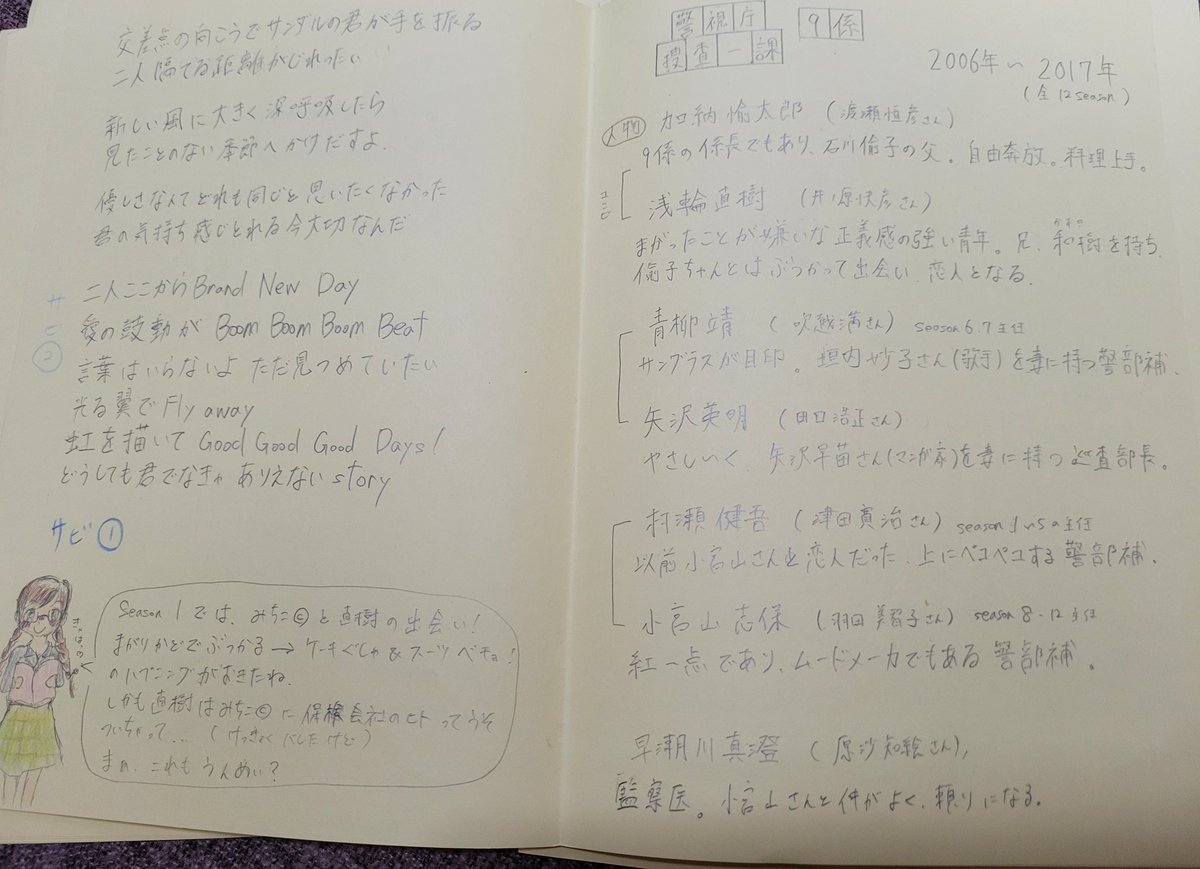 交差点の向こうでサンダルの君が手を振る
二人隔てる距離がじれったい
新しい風に大きく深呼吸したら
見たことのない季節へかけだすよ.
優しさなんてどれも同じと思いたくなかった
君の気持ち感じとれる今大切なんだ
サビ②
二人ここからBrand New Day
愛の鼓動が Boom Boom Boom Beat
言葉はいらないよ ただ見つめていたい
光る翼で Fly away
虹を描いて Good Good Good Days!
どうしても君でなきゃ ありえない story
サビ①
Season 1では、みちこ©と直樹の出会い!
まがりかどでぶつかる→ケーキぐしゃ&スーツベチョ!
のハプニングがおきたね.
しかも直樹はみちこ©に保険会社のヒトってうそ
ついちゃって... (けっきょくバレたけど)
まぁ、これもうんめい?
警視庁
捜査一課
9係
2006年〜2017年
(全12season)
人物
加納倫太郎 (渡瀬恒彦さん)
9係の係長でもあり、石川倫子の父。自由奔放。料理上手。
浅輪直樹 (井ノ原快彦さん)
まがったことが嫌いな正義感の強い青年。兄、和樹を持ち、
倫子ちゃんとはぶつかって出会い 恋人となる.
青柳靖 (吹越満さん) season 6.7主任
サングラスが目印。垣内妙子さん(歌手)を妻に持つ警部補.
矢沢英明 (田口浩正さん)
やさしく、矢沢早苗さん(マンガ家)を妻に持つ巡査部長。
村瀬健吾 (津田寛治さん) season 1〜5の主任
以前小宮山さんと恋人だった、上にペコペコする警部補.
小宮山志保 (羽田美智子さん) season 8-12主任
紅一点であり、ムードメーカでもある警部補。
早瀬川真澄 (原沙知絵さん),
監察医。小宮山さんと仲がよく、頼りになる.